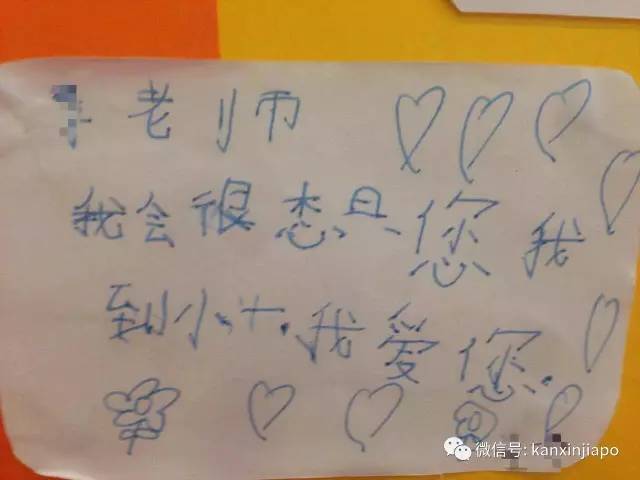 老师
我会很想您我
到小我爱您.
微信号: kanxinjiapo